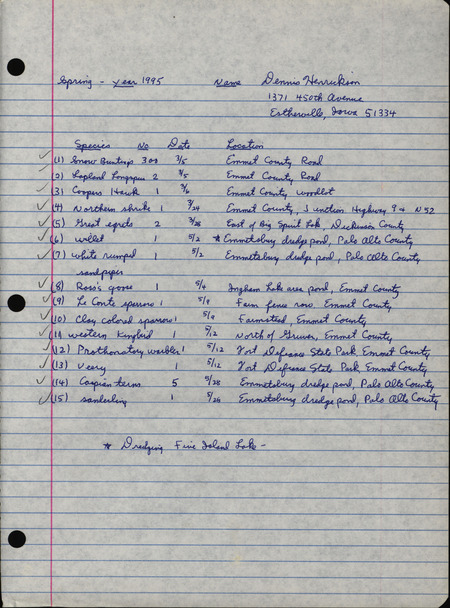 Spring - year 1995 Name Dennis Henrickson
1371 450th Avenue
Estherville, Iowa 51334
Species No Date Location
(1) Snow Buntings 300 3/5 Emmet County Road
(2) Lapland Longspur 2 3/5 Emmet County Road
(3) Coopers Hawk 1 Emmet County woodlot
(4) Northern shrike 1 3/24 Emmet County, Junction Highway 9 + N 52
(5) Great egrets 2 3/28 East of Big Spirit Lake, Dickinson County
(6) willet 1 5/2 * Emmetsburg dredge pond, Palo Alto County
(7) white rumped 1 5/2 Emmetsburg dredge pond, Palo Alto County
sandpiper
(8) Ross's goose 1 5/4 Ingham Lake area pond, Emmet County
(9) Le Conte sparrow 1 5/9 Farm fence row, Emmet County
(10) Clay colored sparrow 1 5/9 Farmstead, Emmet County
(11) western Kingbird 1 5/12 North of Gruver, Emmet County
(12) Prothonotary warbler 1 5/12 Fort Defiance State Park Emmet County
(13) Veery 1 5/12 Fort Defiance State Park Emmet County
(14) Caspian terns 5 5/28 Emmetsburg dredge pond, Palo Alto County
(15) sanderling 1 5/28 Emmetsburg dredge pond, Palo Alto County
* Dredging Five Island Lake -